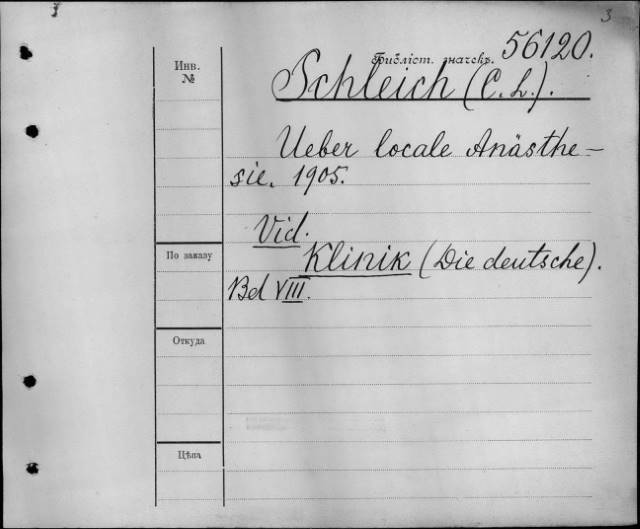 3
Библіот. значекъ. 56120.
Инв.
№
Schleich (C. L.).
Ueber locale Anästhe-
sie. 1905.
Vid.
Klinik (Die deutsche).
Bd VIII.
По заказу
Откуда
Цѣна